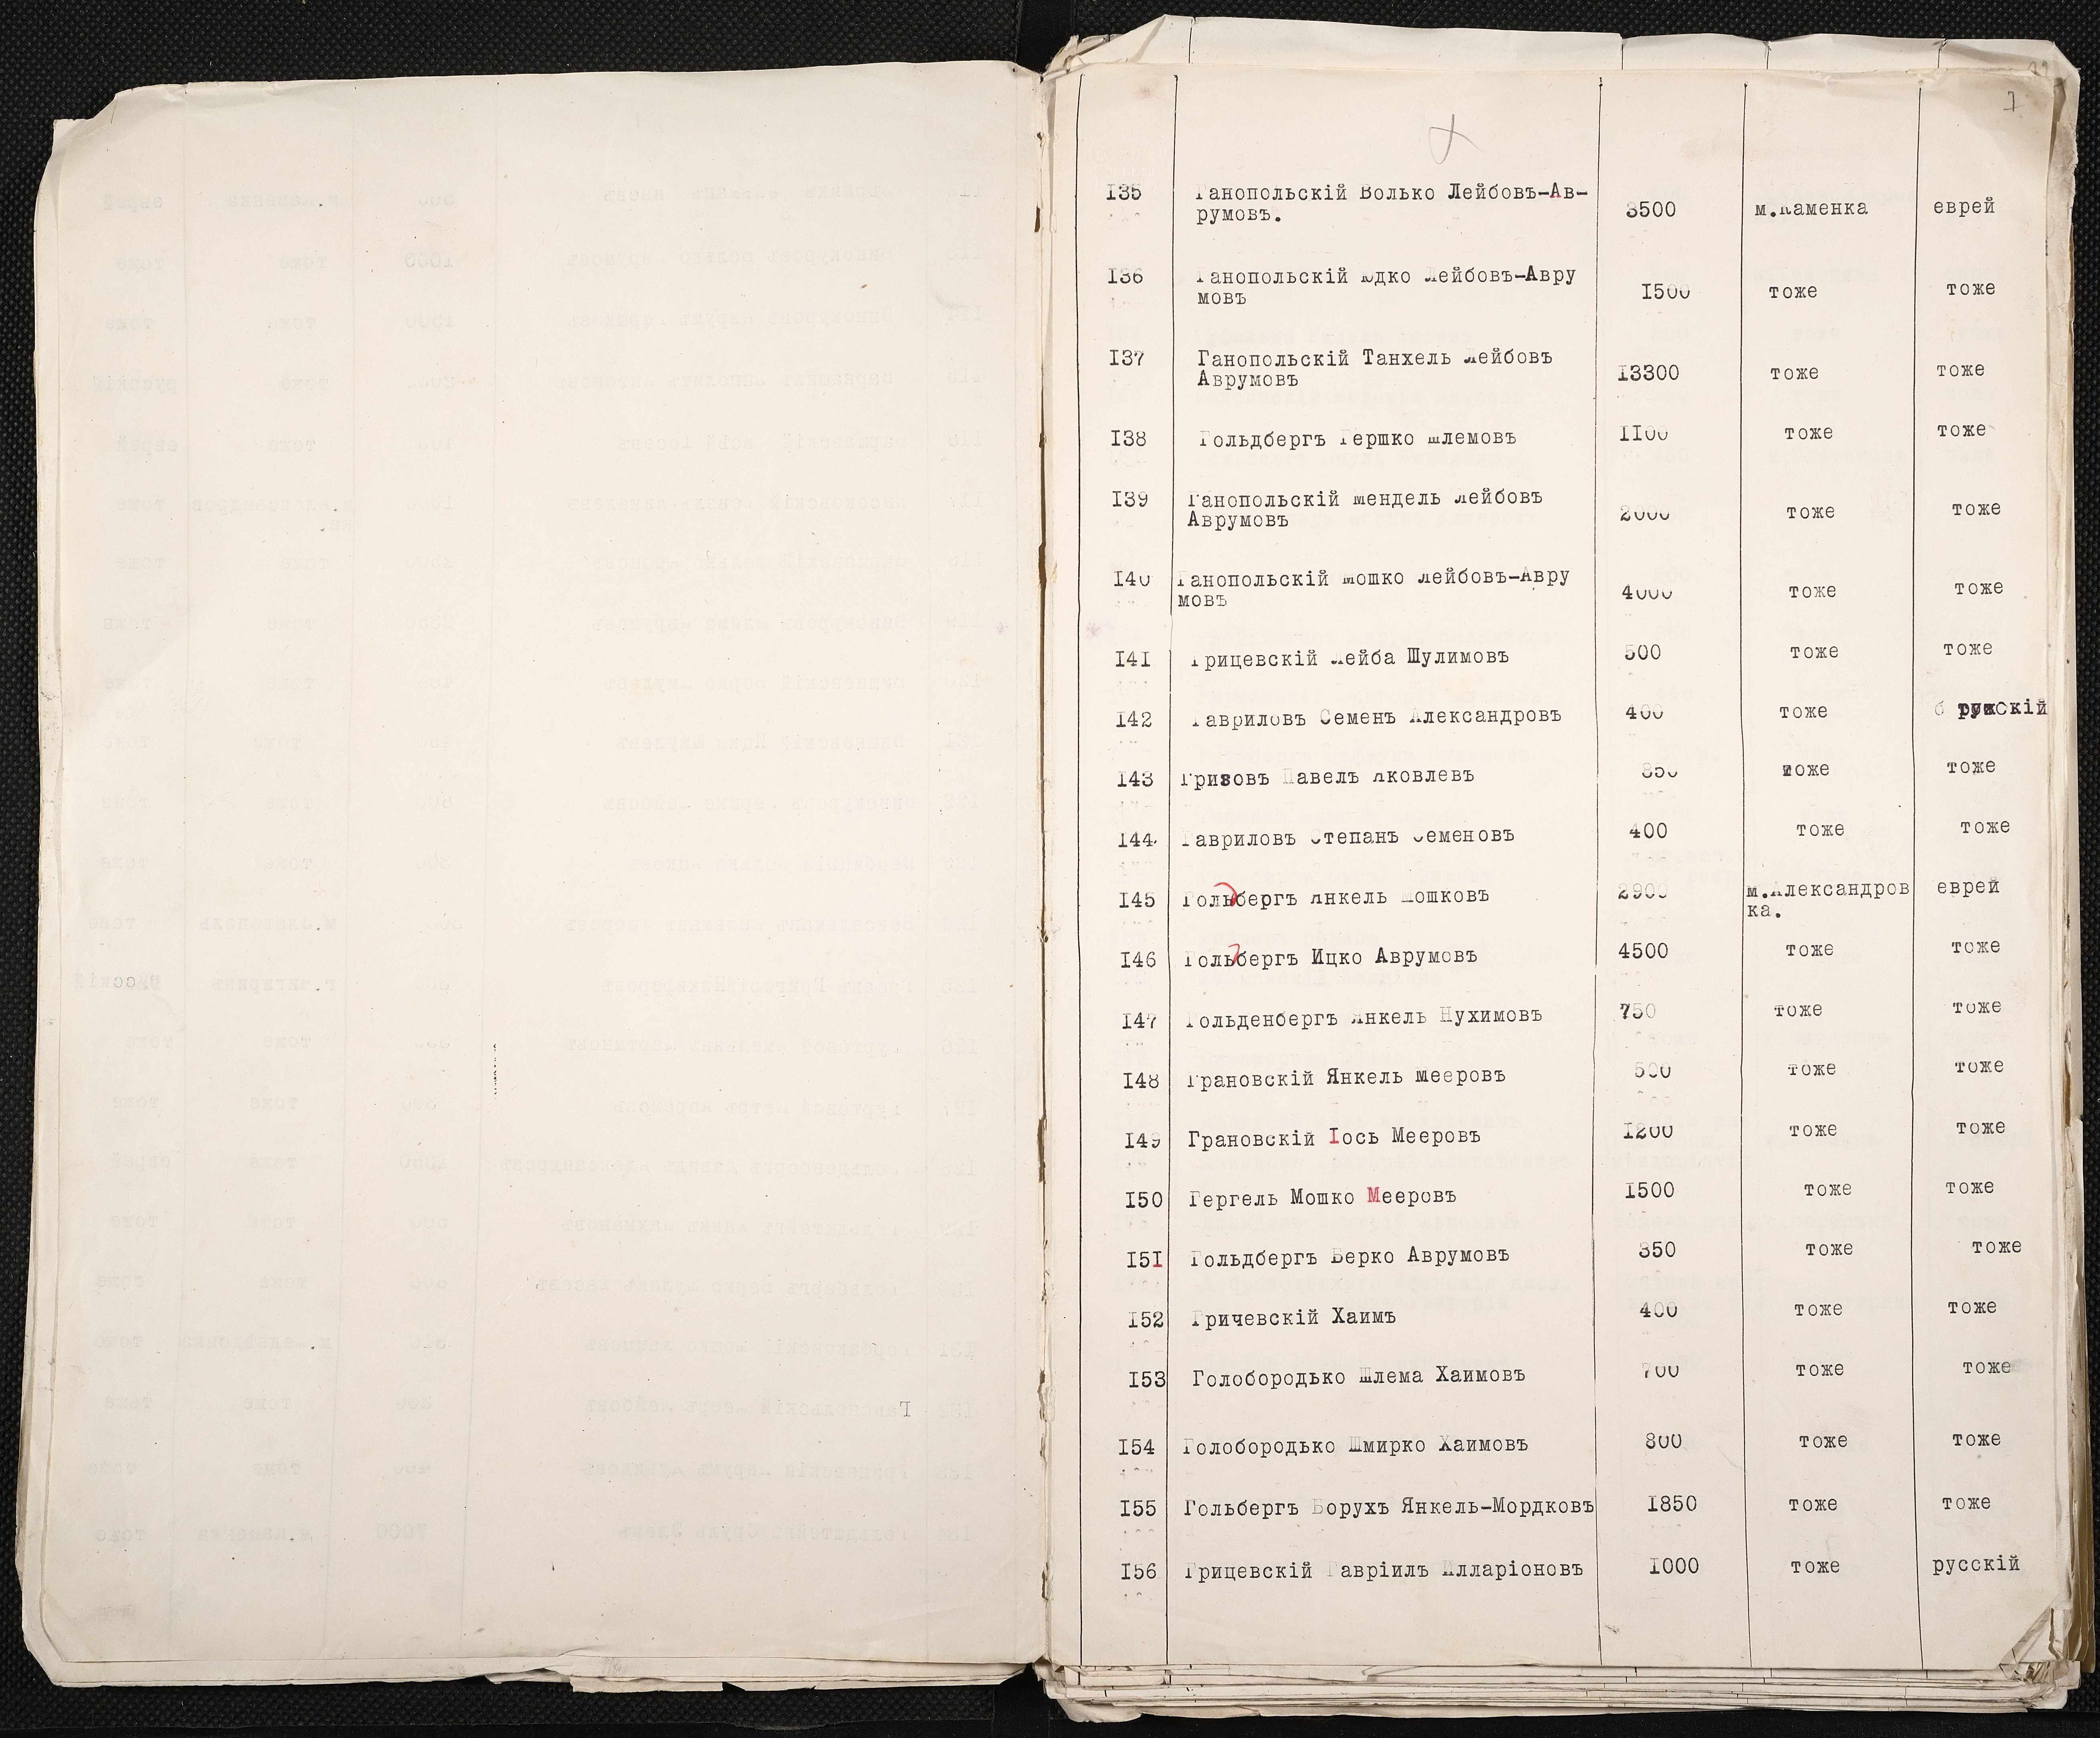 7
135 Ганопольскій Волько Лейбовъ-Ав-
румовъ. 3500 м.Каменка еврей
136 Ганопольскій Юдко Лейбовъ-Авру
мовъ 1500 тоже тоже
137 Ганопольскій Танхель Лейбовъ
Аврумовъ 13300 тоже тоже
138 Гольдбергъ Гершко Шлемовъ 1100 тоже тоже
139 Ганопольскій Мендель Лейбовъ
Аврумовъ 2000 тоже тоже
140 Ганопольскій Мошко Лейбовъ-Авру
мовъ 4000 тоже тоже
141 Грицевскій Лейба Шулимовъ 500 тоже тоже
142 Гавриловъ Семенъ Александровъ 400 тоже русскій
143 Гризовъ Павелъ Яковлевъ 850 тоже тоже
144 Гавриловъ Степанъ Семеновъ 400 тоже тоже
145 Гольбергъ Янкель Мошковъ 2900 м.Александров еврей
ка.
146 Гольбергъ Ицко Аврумовъ 4500 тоже тоже
147 Гольденбергъ Янкель Нухимовъ 750 тоже тоже
148 Грановскій Янкель Мееровъ 500 тоже тоже
149 Грановскій Іось Мееровъ 1200 тоже тоже
150 Гергель Мошко Мееровъ 1500 тоже тоже
151 Гольдбергъ Берко Аврумовъ 350 тоже тоже
152 Гричевскій Хаимъ 400 тоже тоже
153 Голобородько Шлема Хаимовъ 700 тоже тоже
154 Голобородько Шмирко Хаимовъ 800 тоже тоже
155 Гольбергъ Борухъ Янкель-Мордковъ 1850 тоже тоже
156 Грицевскій Гавріилъ Илларіоновъ 1000 тоже русскій